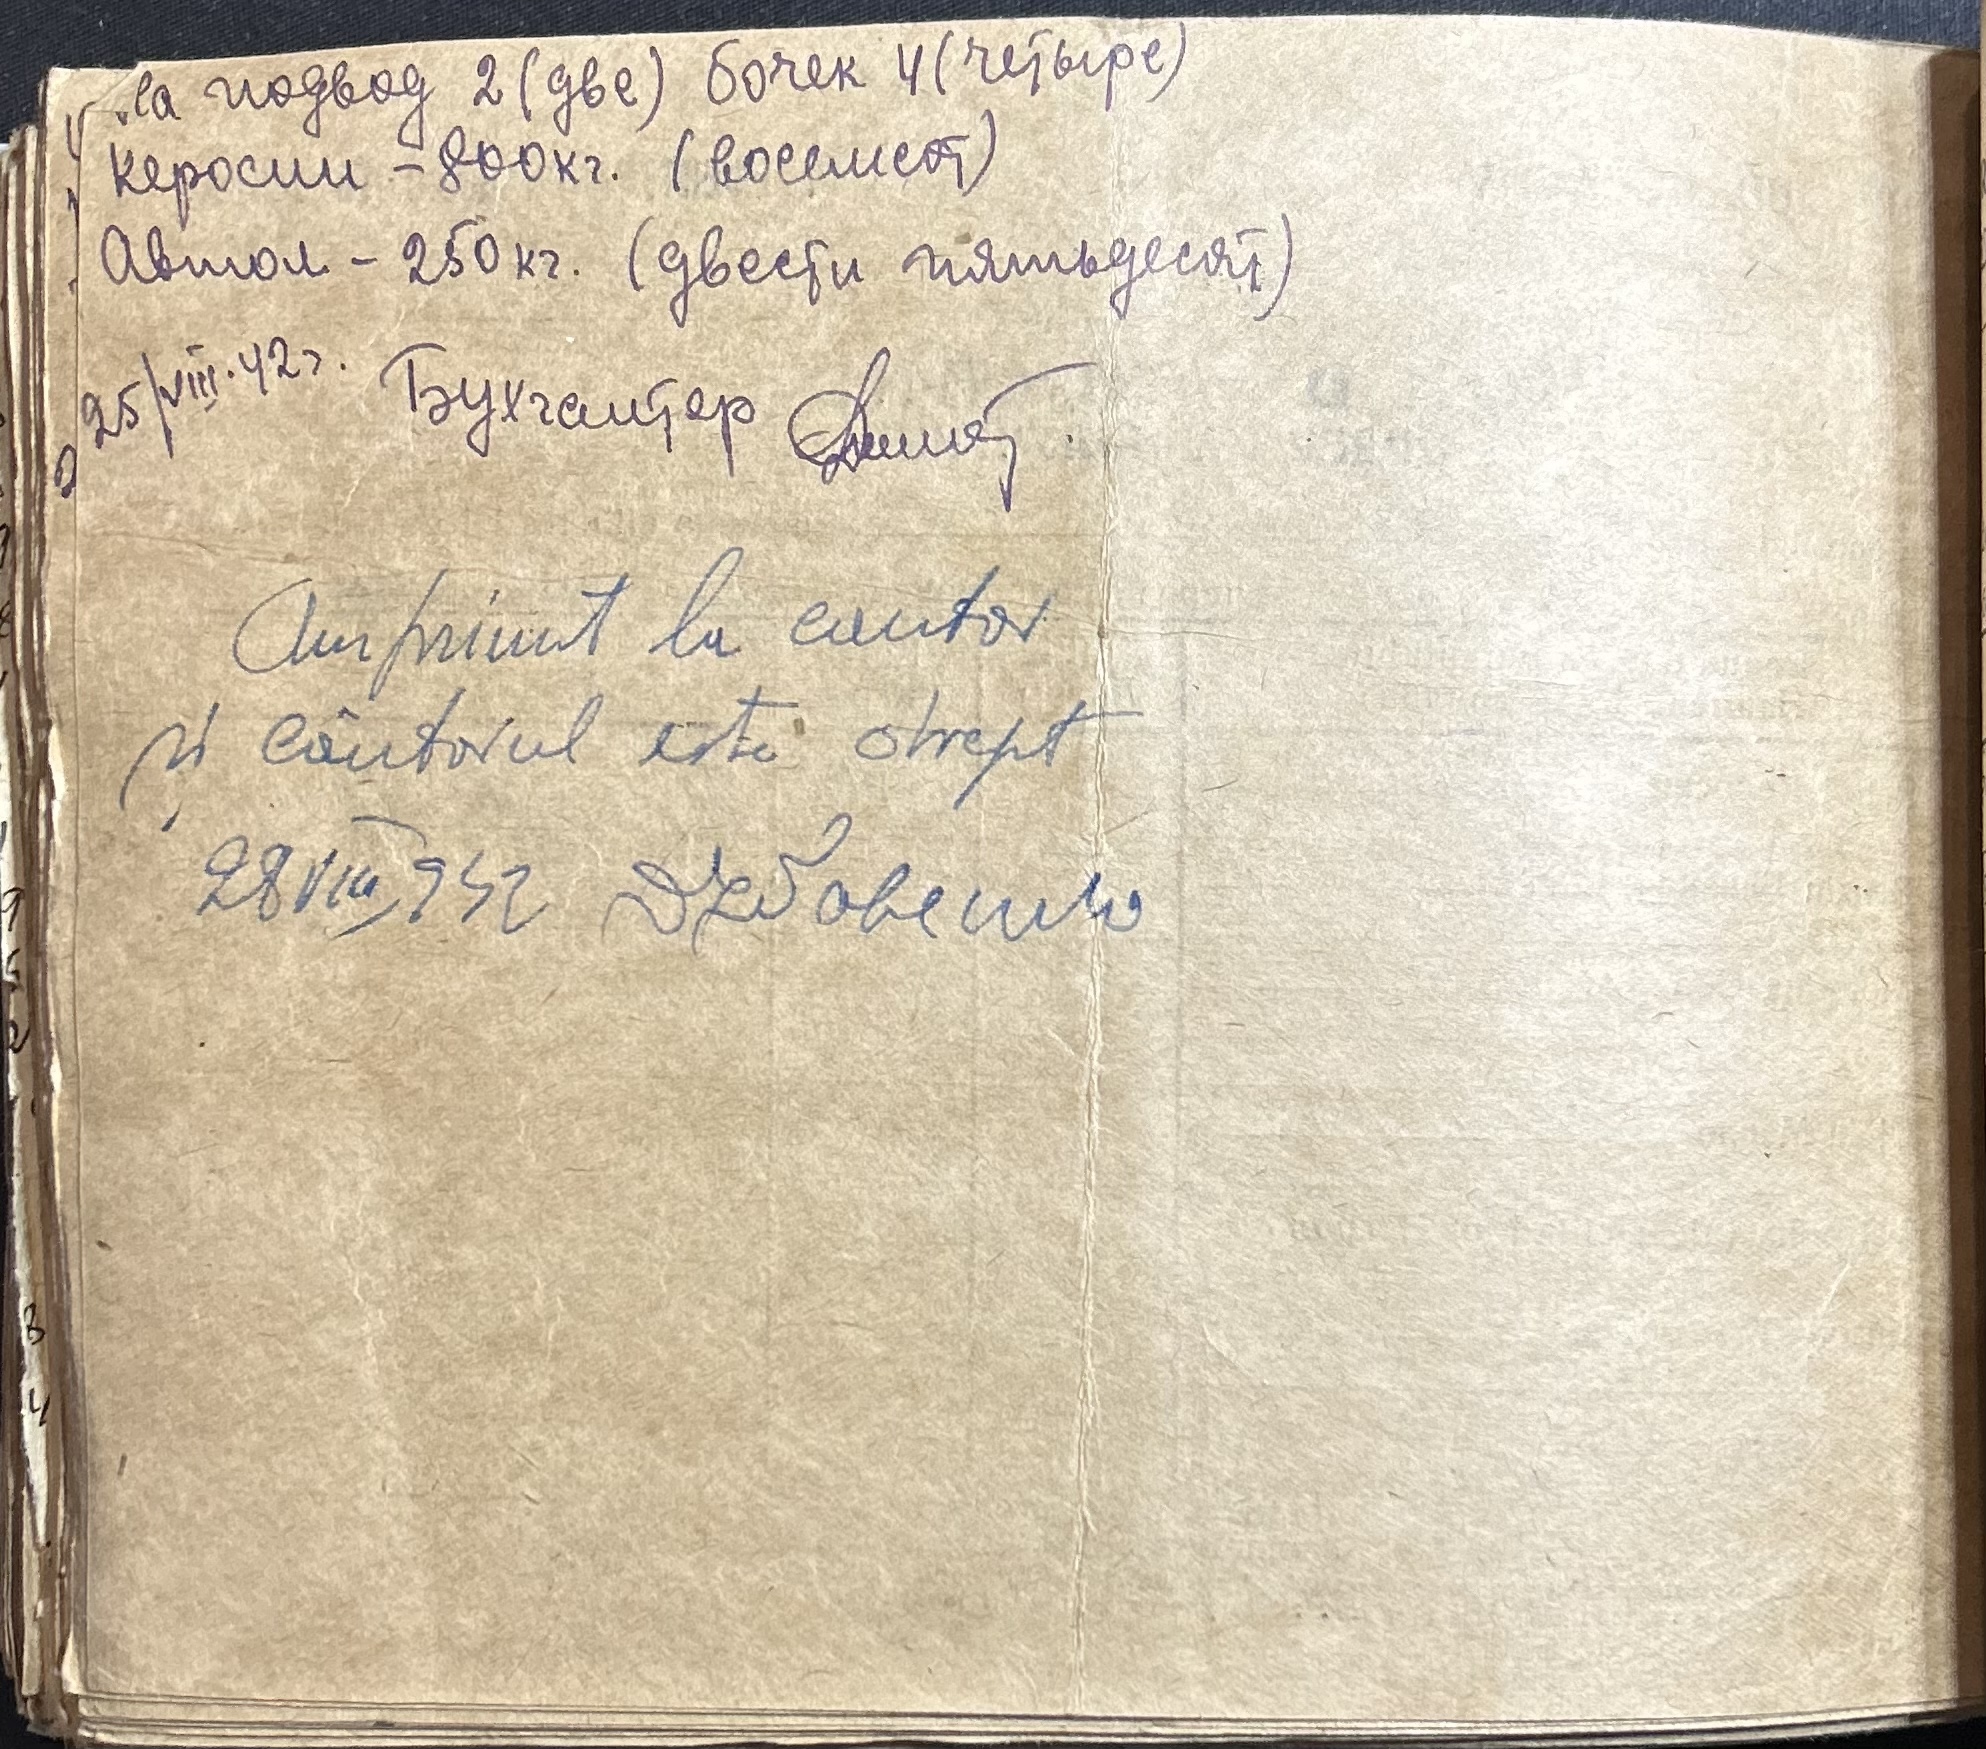 на подвод 2 (две) бочек 4 (четыре)
Керосин - 800 кг. (восемсот)
Автол - 250 кг. (двести пятьдесят)
25/VIII. 42 г. Бухгалтер
Am primit la cantor
și cântorul este drept
28 VIII 942